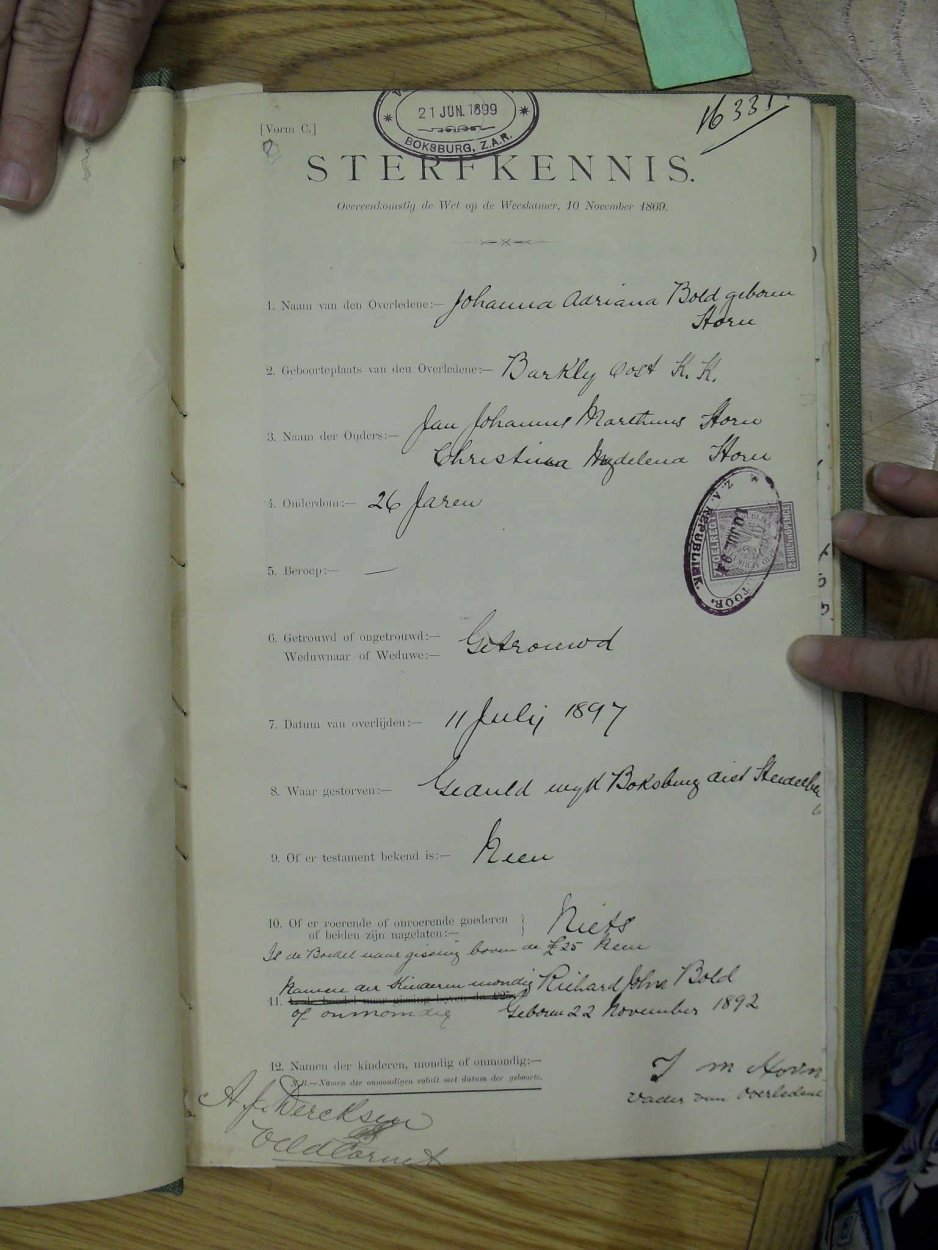 21 JUN. 1899
BOKSBURG, Z.A.R.
[Vorm C.]
STERFKENNIS.
Overeenkomstig de Wet op de Weeskamer, 10 November 1869.
1. Naam van den Overledene:— Johanna Adriana Bold geboren
Horn
2. Geboorteplaats van den Overledene:— Barkly Oost K. K.
3. Naam der Ouders:— Jan Johannes Marthinus Horn
Christina Horn
4. Ouderdom:— 26 Jaren
5. Beroep:— —
6. Getrouwd of ongetrouwd:— Getrouwd
Weduwnaar of Weduwe:—
7. Datum van overlijden:— 11 Julij 1897
8. Waar gestorven:— wyk Boksburg dist
9. Of er testament bekend is:— Neen
10. Of er roerende of onroerende goederen } Niets
of beiden zijn nagelaten:—
Is de Boedel naar gissing boven de £25 Neen
Namen der Kinderen mondig Richard John Bold
11.
of onmondig Geboren 22 November 1892
12. Namen der kinderen, mondig of onmondig:—
N.B.—Namen der onmondigen voluit met datum der geboorte.
Horn
vader van overledene
Z. A. REPUBLIEK.
A. J. Dercksen
Veld Cornet